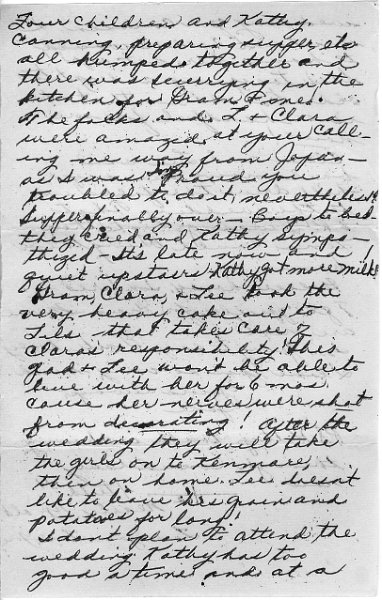 Four children and Kathy,
canning, preparing supper, etc
all humped together and
there was scurrying in the
kitchen for Gram & me.
The folks and L. & Clara
were amazed at your call-
ing me way from Japan –
as I was & proud you
troubled to do it, nevertheless!!
Supper finally over – Boys to bed
they cried and Kathy sympa-
thized – It's late now and
quiet upstairs Kathy got more milk!
Gram, Clara, & Lee took the
very heavy cake out to
Lils – that takes care of
Claras responsibility! This
gad & Lee won't be able to
live with her for 6 mos
cause her nerves were shot
from decorating! After the
wedding they will take
the girls on to Kenmare,
then on home. Lee doesn't
like to leave his grain and
potatoes for long!
I don't plan to attend the
wedding. Kathy has too
good a time and at a